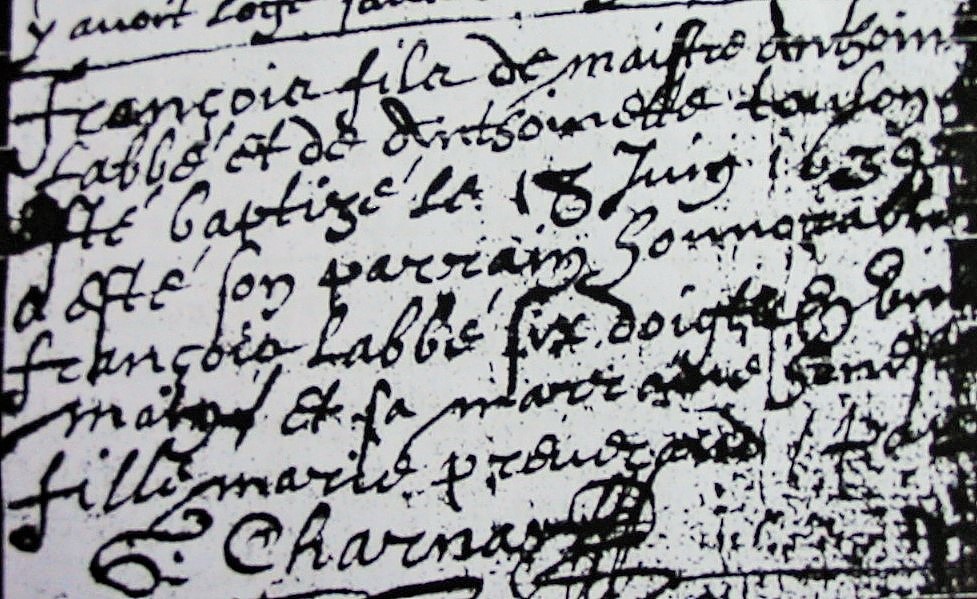 y avoit
françois fils de maistre Anthoin
Labbé et de Anthoinette toulon
esté baptizé le 18 Juin 1639
a esté son parrain honnorable
françois Labbé six doigts en
mains et sa marraine
fille marie
S. Charnay